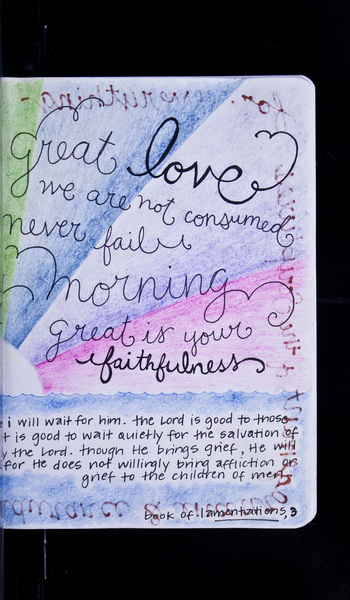 great love
we are not consumed
never fail
morning
great is your
faithfulness
i will wait for him. the Lord is good to those
t is good to wait quietly for the salvation of
y the Lord. though He brings grief, He will
for He does not willingly bring affliction or
grief to the children of men.
book of lamentations, 3